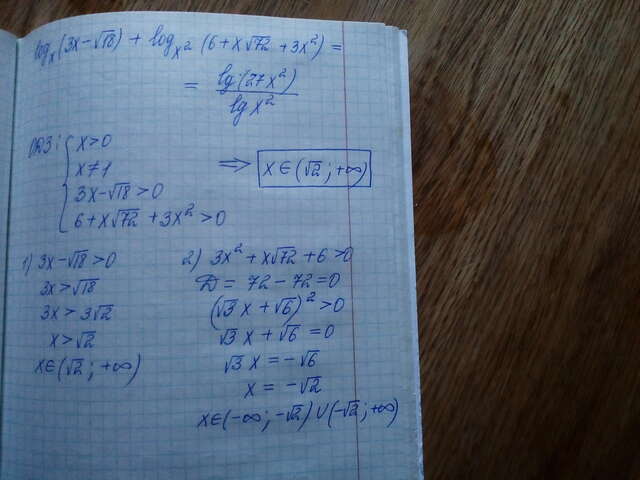 log_x(3x-√18) + log_x² (6+x√72 +3x²) =
= lg(27x²)/lg x²
ОДЗ: { x>0
x≠1 ⇒ x∈(√2; +∞)
3x-√18>0
6+x√72 +3x²>0
1) 3x-√18>0
3x>√18
3x>3√2
x>√2
x∈(√2; +∞)
2) 3x²+x√72+6>0
D = 72-72=0
(√3 x+√6)²>0
√3 x+√6=0
√3 x=-√6
x=-√2
x∈(-∞; -√2)∪(-√2; +∞)